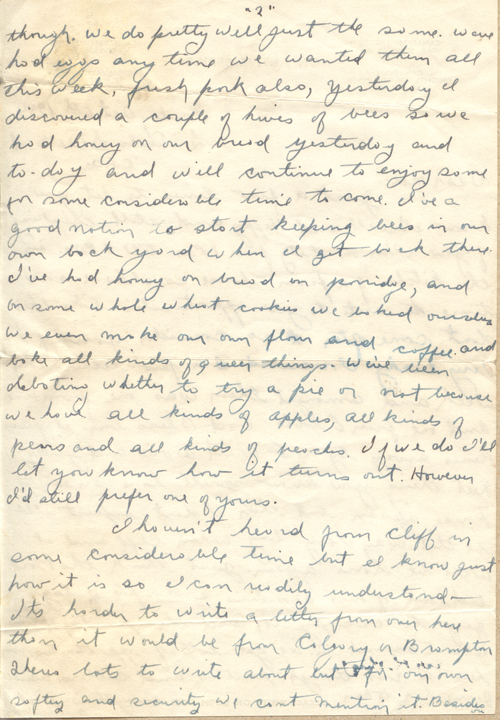 "2"
though. We do pretty well just the same. We've
had eggs any time we wanted them all
this week, fresh pork also, yesterday I
discovered a couple of hives of bees so we
had honey on our bread yesterday and
to-day and will continue to enjoy some
for some considerable time to come. I've a
good notion to start keeping bees in our
own back yard when I get back there.
I've had honey on bread on porridge, and
on some whole wheat cookies we baked ourselves
we even make our own flour and coffee and
bake all kinds of queer things. We've been
debating whether to try a pie or not because
we have all kinds of apples, all kinds of
pears and all kinds of peaches. If we do I'll
let you know how it turns out. However
I'd still prefer one of yours.
I haven't heard from Cliff in
some considerable time but I know just
how it is so I can readily understand—
It's harder to write a letter from over here
than it would be from Calgary or Brampton
Theres lots to write about but for our own
saftey and security we cant mention it. Besides